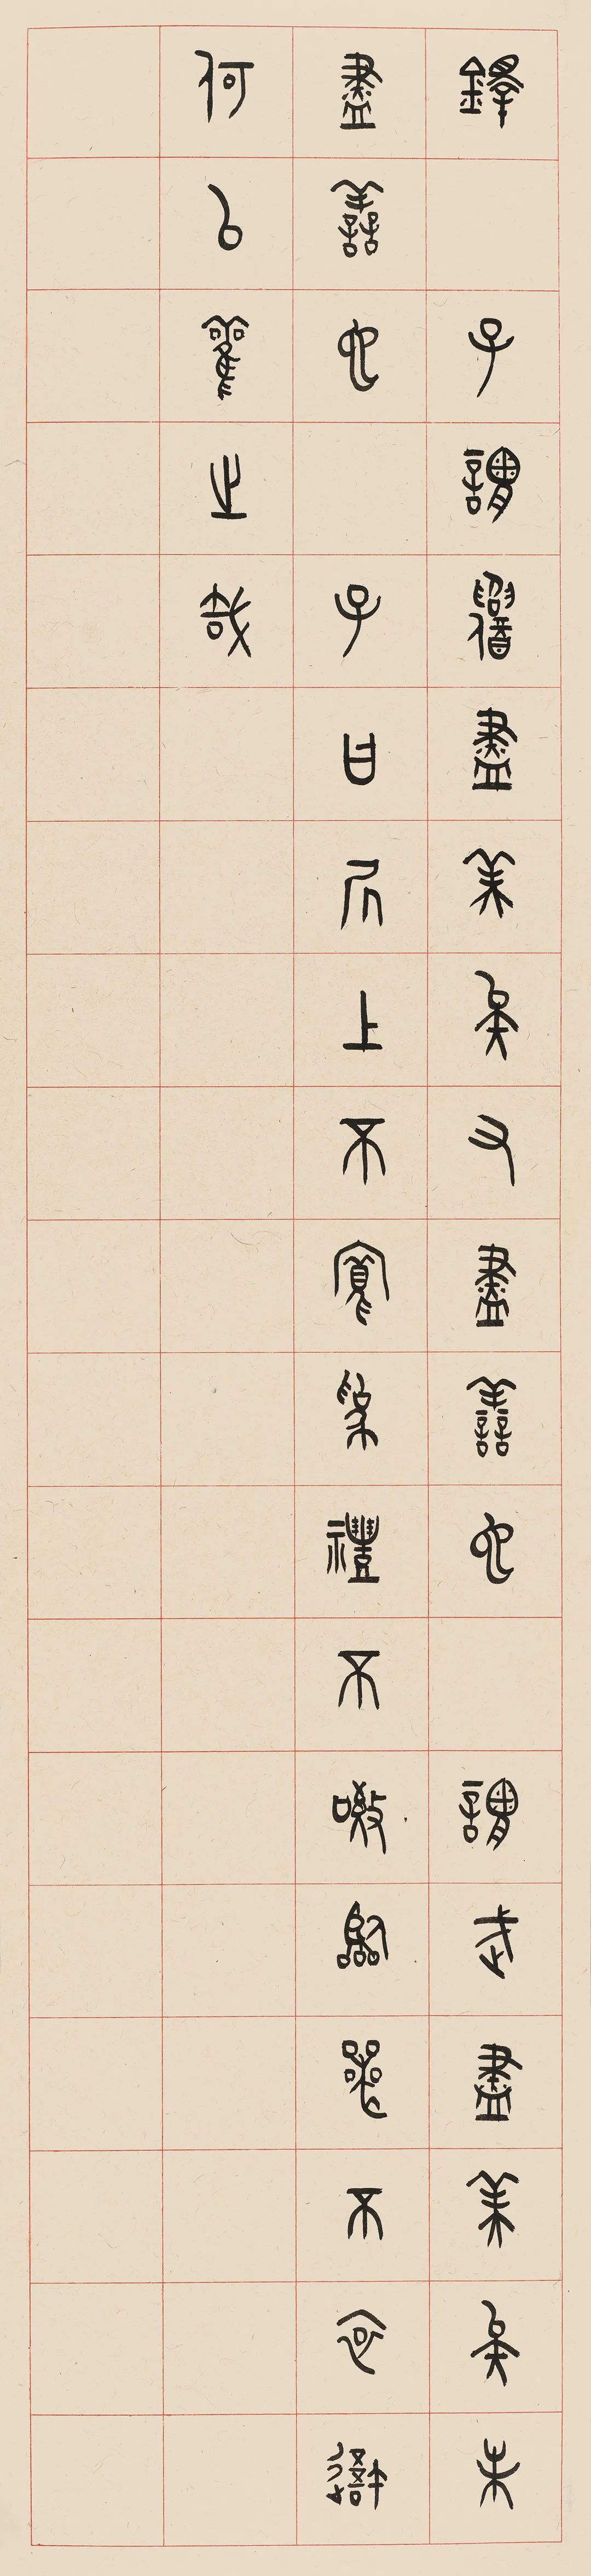 鐸　子謂韶盡美矣又盡善也　謂武盡美矣未
盡善也　子曰居上不寬為禮不敬臨喪不哀吾
何以觀之哉